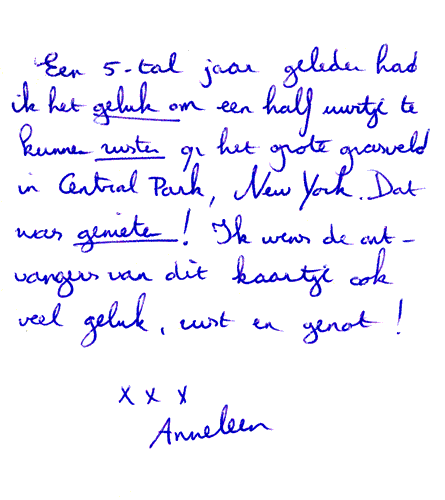 Een 5-tal jaar geleden had
ik het geluk om een half uurtje te
kunnen rusten op het grote grasveld
in Central Park, New York. Dat
was genieten! Ik wens de ont-
vangers van dit kaartje ook
veel geluk, rust en genot!
x x x
Anneleen